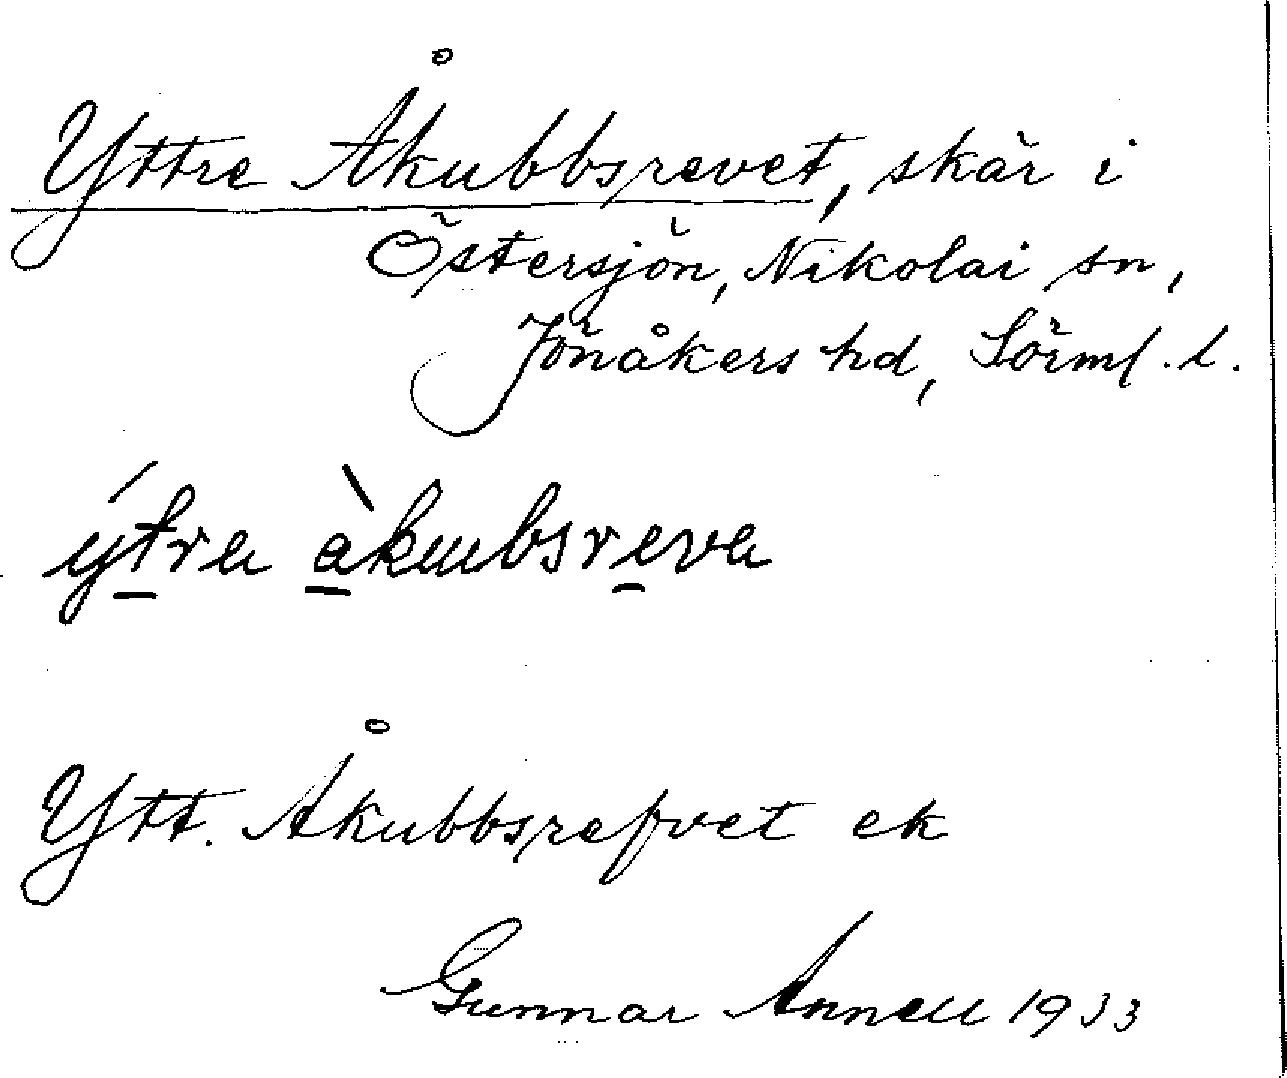 Yttre Åkubbsrevet, skär i
Östersjön, Nikolai sn,
Jönåkers hd, Sörml. l.
ýtra àkubsreva
Ytt. Åkubbsrefvet ek
Gunnar Annell 1933